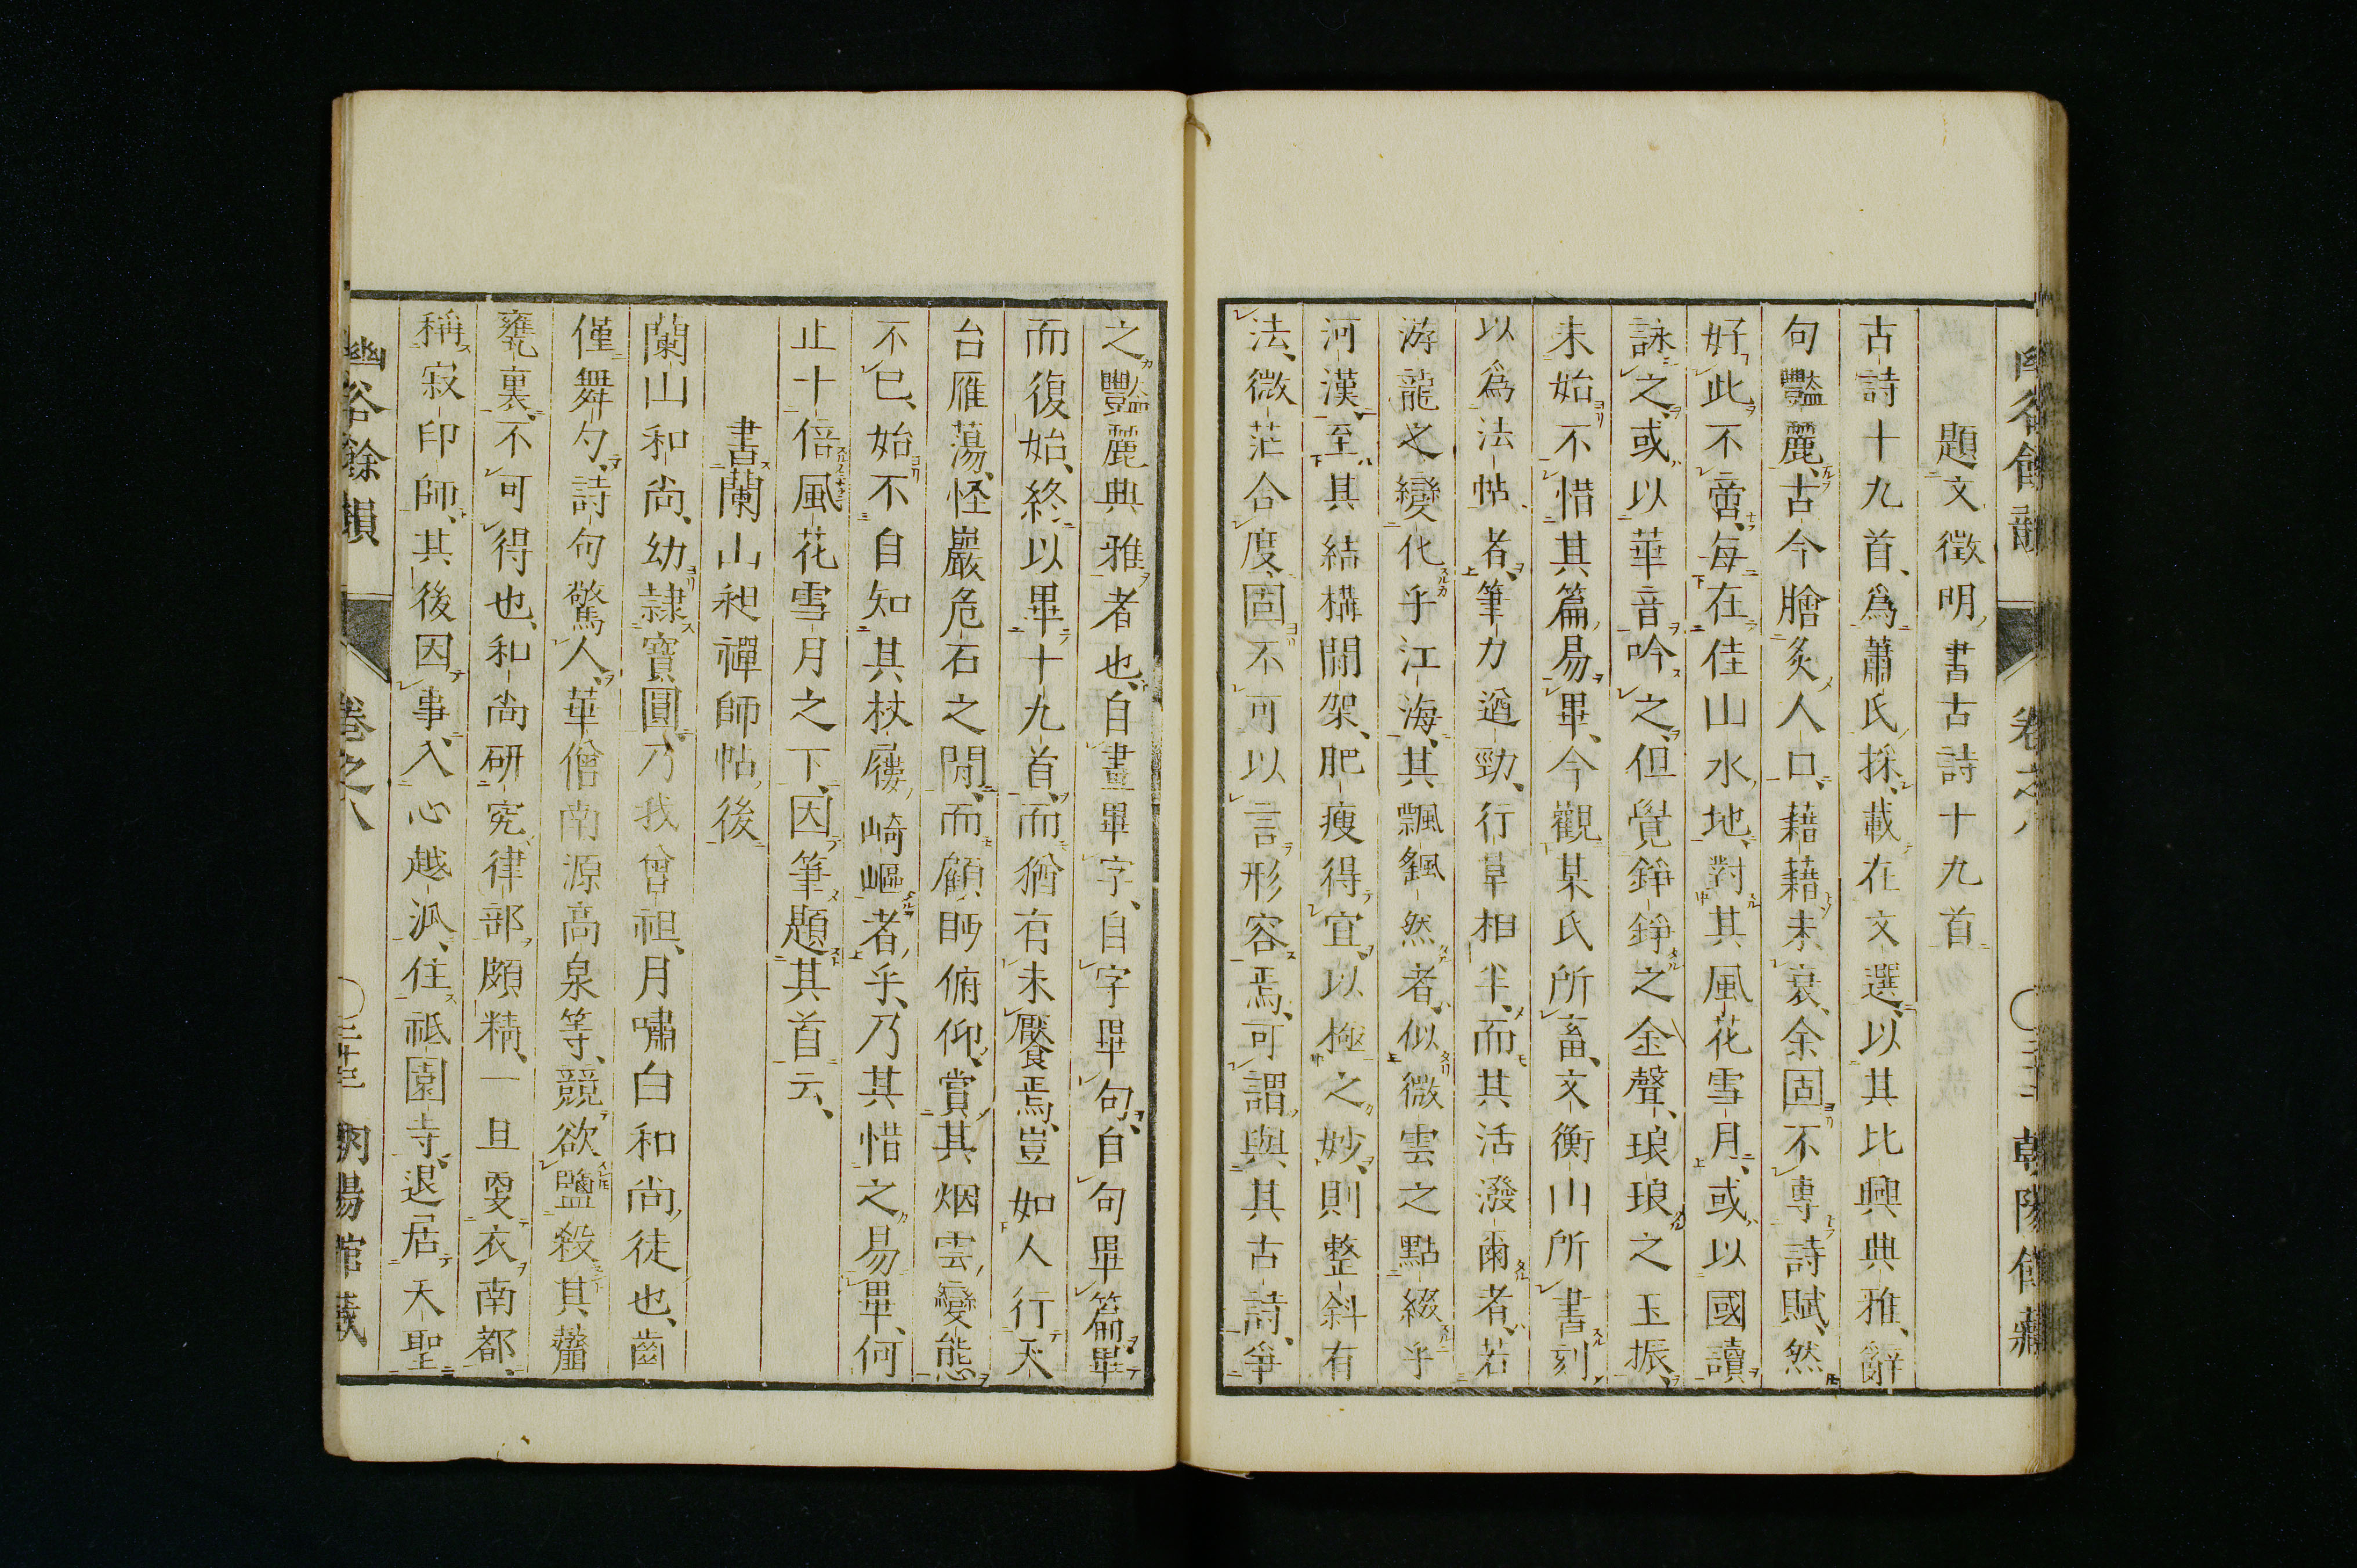 幽谷餘韻 卷之八 朝陽館藏
題文徵明書古詩十九首
古詩十九首、爲蕭氏採載在文選、以其比興典雅、辭
句豔麗、古今膾炙人口、藉藉未衰、余固不專詩賦、然
好此不啻、每在佳山水地、對其風花雪月、或以國讀
詠之、或以華音吟之、但覺錚錚之金聲、琅琅之玉振、
未始不惜其篇易畢、今觀某氏所畜、文衡山所書刻
以爲法帖者、筆力遒勁、行草相半、而其活潑爾者、若
游龍之變化乎江海、其飄颻然者、似微雲之點綴乎
河漢、至其結構開架、肥瘦得宜、以極之妙、則整斜有
法、微茫合度、固不可以言形容焉、可謂與其古詩、爭
之豔麗典雅者也、自畫畢字、自字畢句、自句畢篇、畢
而復始、終以畢十九首、而猶有未饜焉、豈如人行天
台雁蕩、怪巖危石之間、而顧眄俯仰、賞其烟雲變態
不已、始不自知其杖屨崎嶇者乎、乃其惜之易畢、何
止十倍風花雪月之下、因筆題其首云、
書蘭山昶禪師帖後
蘭山和尚、幼隷寶圓、乃我曾祖、月嘯白和尚徒也、齒
僅舞勺、詩句驚人、華僧南源高泉等、競欲鹽殺其虀
甕裏、不可得也、和尚研究律部頗精、一旦更衣南都、
稱寂印師、其後因事入心越派、住祇園寺、退居天聖
幽谷餘韻 卷之八 〇三十三 朝陽館藏